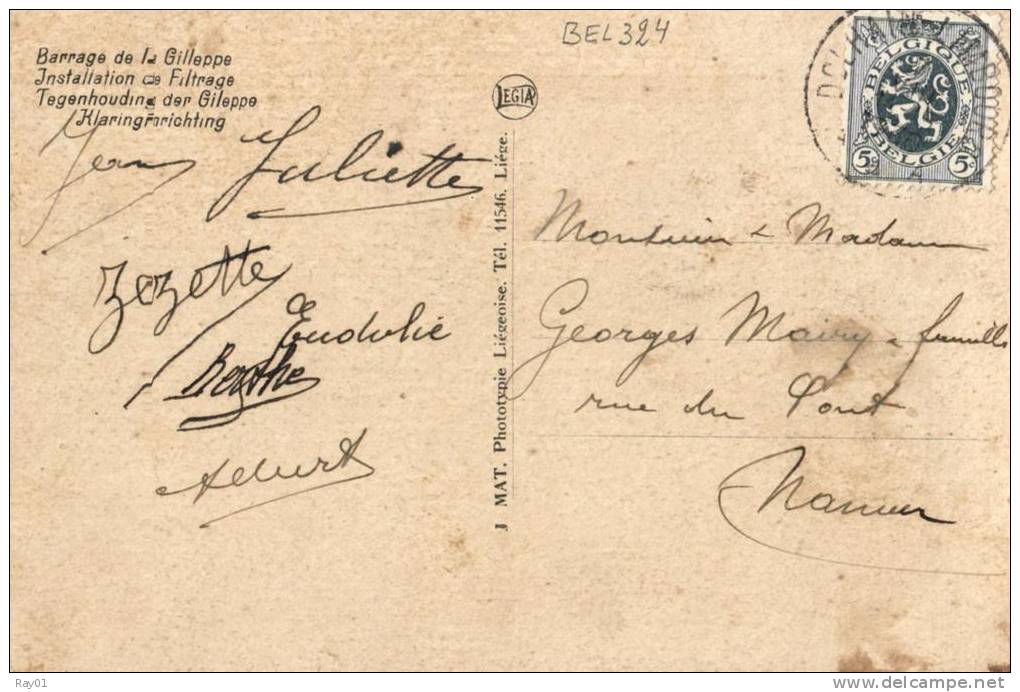 BEL324
Barrage de la Gilleppe
Installation de Filtrage
Tegenhouding der Gileppe
Klaringinrichting
LEGIA
BELGIQUE
BELGIE
5c 5c
Jean Juliette
Zezette
Eudolie
Berthe
Albert
J MAT. Phototypie Liégeoise. Tél. 11546. Liége.
Monsieur & Madame
Georges Mairy & famille
rue du Pont
Namur
Ray01
www.delcampe.net